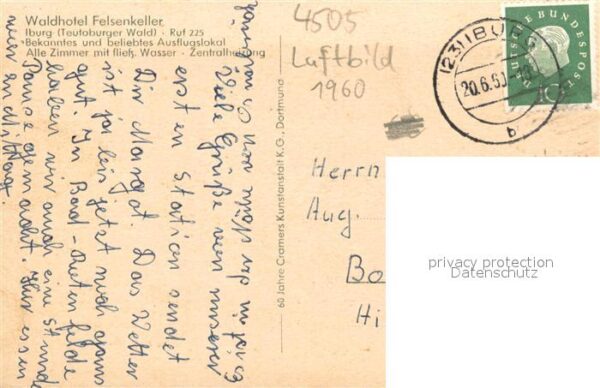 Waldhotel Felsenkeller
Iburg (Teutoburger Wald) · Ruf 225
Bekanntes und beliebtes Ausflugslokal
Alle Zimmer mit fließ. Wasser · Zentralheizung
4505
Luftbild
1960
(23) IBURG
20.6.60
b
DEUTSCHE BUNDESPOST
10
60 Jahre Cramers Kunstanstalt K.G., Dortmund
Viele Grüße von unserer
ersten Station sendet
Dir Margot. Das Wetter
ist ja bis jetzt noch ganz
gut. In Bad-
haben wir auch eine Stunde
Pause gemacht. Hier essen
wir Mittag.
Herrn
Aug.
Bo
Hi
privacy protection
Datenschutz